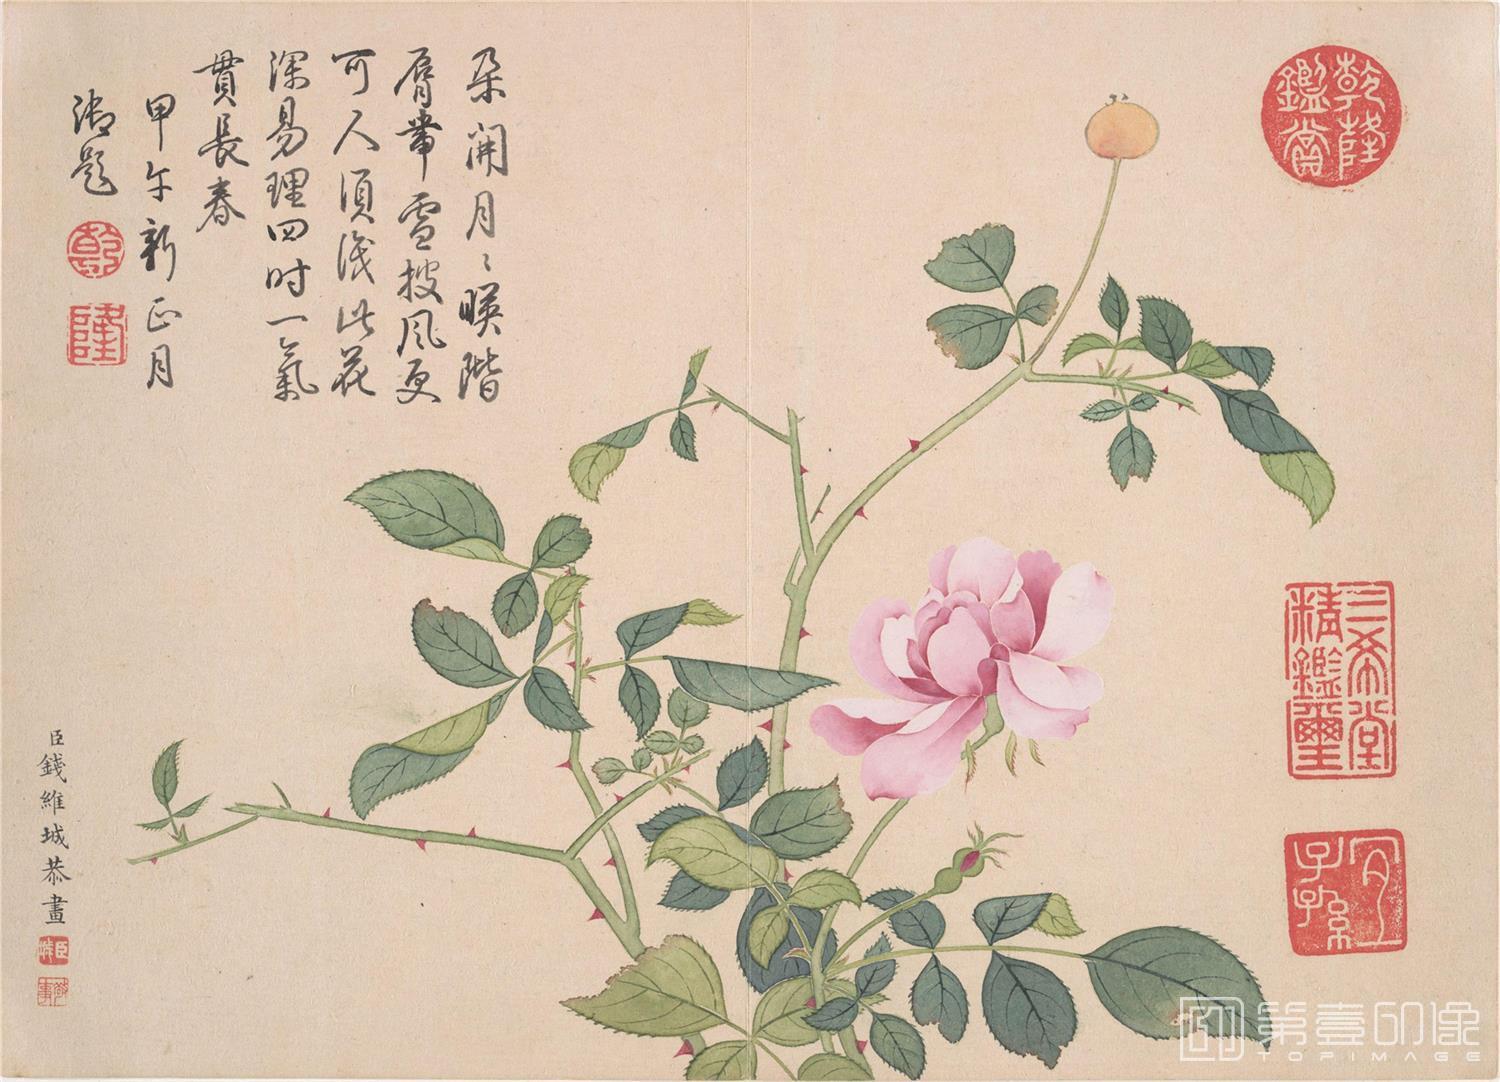 朶開月〻暎階
屑帶雪披風更
可人須識此花
深易理四时一氣
貫長春
甲午新正月
御題
乾
隆
乾隆
鑑賞
三希堂
精鑑璽
宜
子孫
臣錢維城恭畫
第壹印像
TOPIMAGE